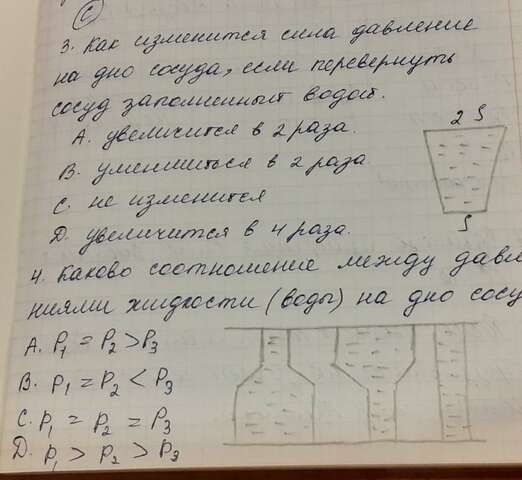 С
3. Как изменится сила давление
на дно сосуда, если перевернуть
сосуд заполненный водой.
А. увеличится в 2 раза.
В. уменшиться в 2 раза.
С. не изменится
D. увеличится в 4 раза.
2 S
S
4. Каково соотношение между давле
ниями жидкости (воды) на дно сосу
А. P1 = P2 > P3
В. P1 = P2 < P3
С. P1 = P2 = P3
D. P1 > P2 > P3